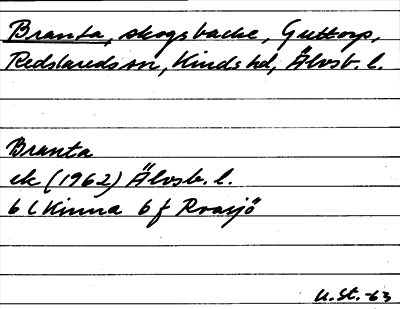 Branta, skogsbacke, Guttorp,
Redslareds sn, Kinds hd, Älvsb. l.
Branta
ek (1962) Älvsb. l.
6 c Kinna 6 f Roasjö
U. St. -63